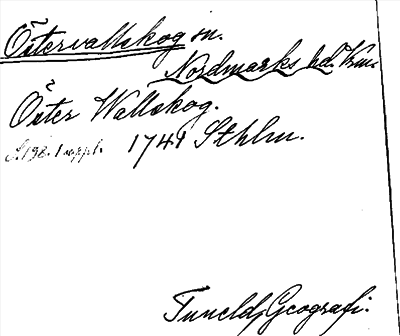 Östervallskog sn.
Nordmarks hd. Vrm.
Öster Wallskog.
S. 198. 1 uppl. 1749 Sthlm.
Tunelds Geografi.